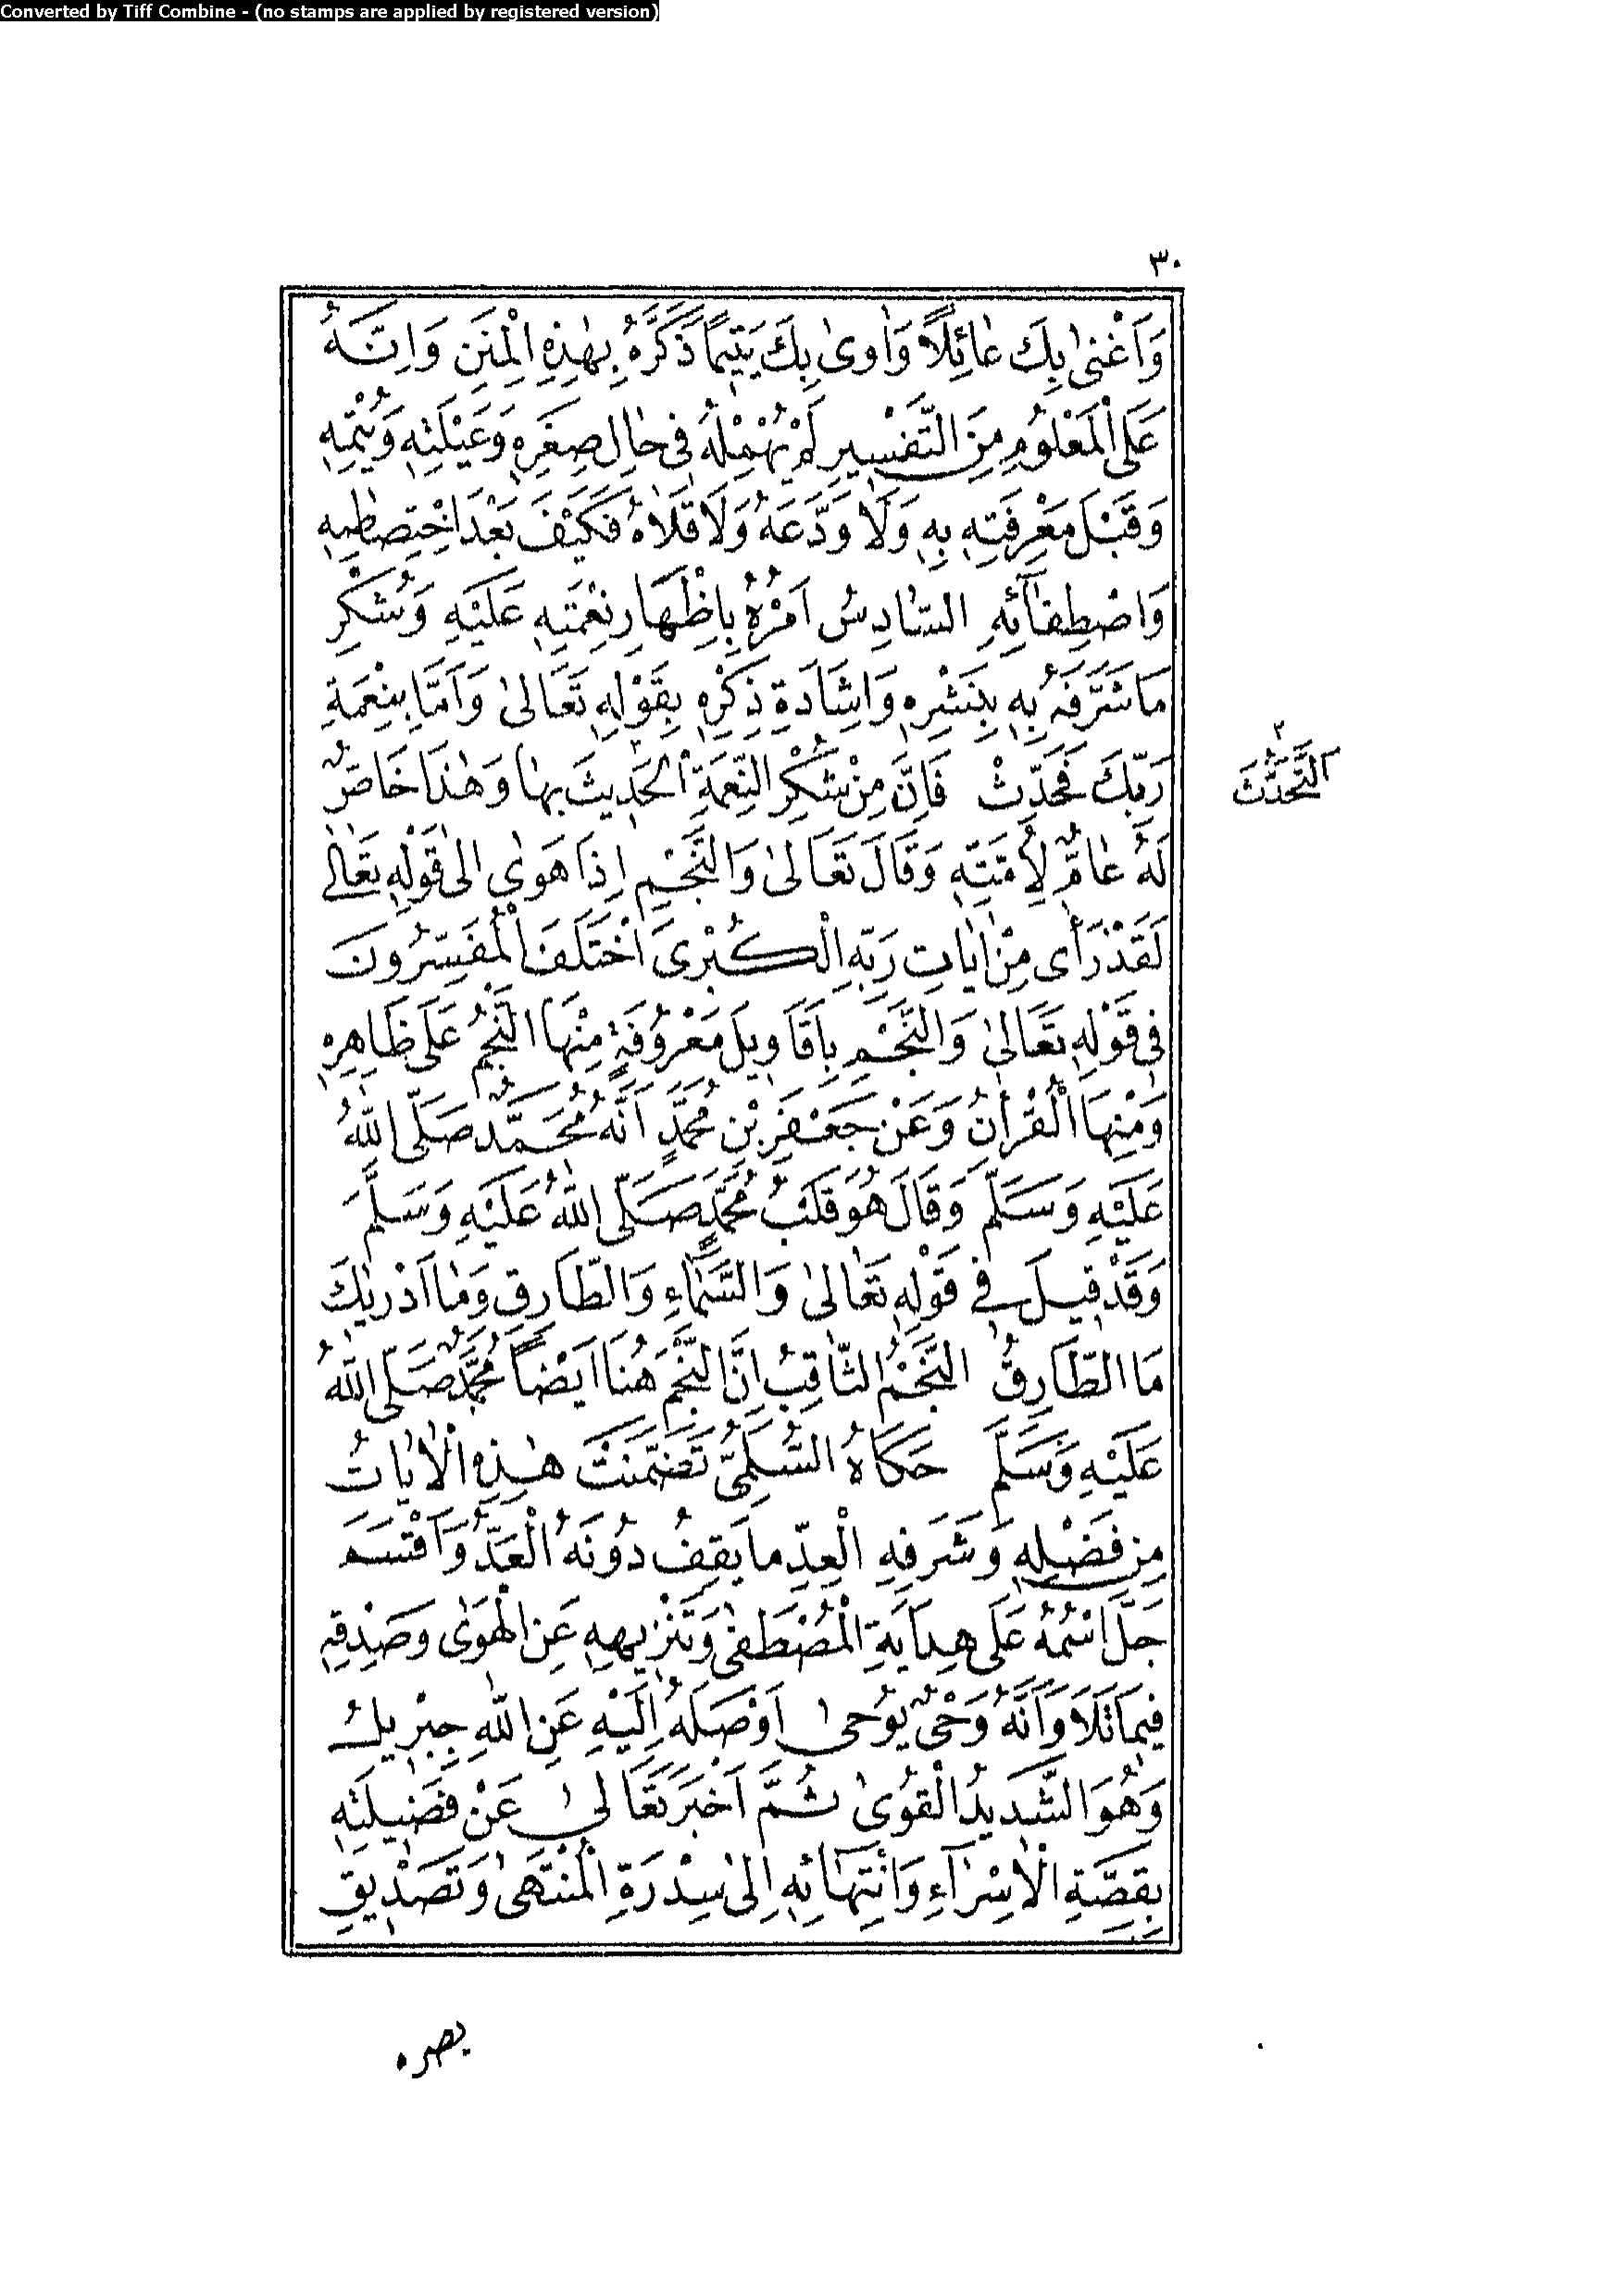 Converted by Tiff Combine - (no stamps are applied by registered version)
٣٠
وَاَغْنٰى بِكَ عٰائِلًا وَاٰوىٰ بِكَ يَتِيمًا ذَكَّرَهُ بِهٰذِهِ الْمِنَنِ وَاِنَّهُ
عَلَى الْمَعْلُومِ مِنَ التَّفْسِيرِ لَمْ يُهْمِلْهُ فِى حٰالِ صِغَرِهِ وَعَيْلَتِهِ وَيُتْمِهِ
وَقَبْلَ مَعْرِفَتِهِ بِهِ وَلَا وَدَّعَهُ وَلَا قَلَاهُ فَكَيْفَ بَعْدَ اخْتِصَاصِهِ
وَاصْطِفٰآئِهِ السَّادِسُ اَمْرُهُ بِاِظْهَارِ نِعْمَتِهِ عَلَيْهِ وَشُكْرِ
مَا شَرَّفَهُ بِهِ بِنَشْرِهِ وَاِشَادَةِ ذِكْرِهِ بِقَوْلِهِ تَعَالىٰ وَاَمَّا بِنِعْمَةِ
رَبِّكَ فَحَدِّثْ فَاِنَّ مِنْ شُكْرِ النِّعْمَةِ الْحَدِيثَ بِهٰا وَهٰذَا خَاصٌّ
التَّحَدُّثَ
لَهُ عٰامٌّ لِاُمَّتِهِ وَقَالَ تَعَالىٰ وَالنَّجْمِ اِذَا هَوٰى اِلىٰ قَوْلِهِ تَعَالٰى
لَقَدْ رَأٰى مِنْ اٰيٰاتِ رَبِّهِ الْكُبْرٰى اخْتَلَفَ الْمُفَسِّرُونَ
فِى قَوْلِهِ تَعَالىٰ وَالنَّجْمِ بِاَقَاوِيلَ مَعْرُوفَةٍ مِنْهَا النَّجْمُ عَلَى ظَاهِرِهِ
وَمِنْهَا الْقُرْاٰنُ وَعَنْ جَعْفَرِ بْنِ مُحَمَّدٍ اَنَّهُ مُحَمَّدٌ صَلَّى اللّٰهُ
عَلَيْهِ وَسَلَّمَ وَقَالَ هُوَ قَلْبُ مُحَمَّدٍ صَلَّى اللّٰهُ عَلَيْهِ وَسَلَّمَ
وَقَدْ قِيلَ فِى قَوْلِهِ تَعَالىٰ وَالسَّمٰاءِ وَالطَّارِقِ وَمٰا اَدْرٰيكَ
مَا الطَّارِقُ النَّجْمُ الثَّاقِبُ اِنَّ النَّجْمَ هُنَا اَيْضًا مُحَمَّدٌ صَلَّى اللّٰهُ
عَلَيْهِ وَسَلَّمَ حَكَاهُ السُّلَمِىُّ تَضَمَّنَتْ هٰذِهِ الْاٰيٰاتُ
مِنْ فَضْلِهِ وَشَرَفِهِ الْعِدِّ مَا يَقِفُ دُونَهُ الْعَدُّ وَاَقْسَمَ
جَلَّ اسْمُهُ عَلَى هِدَايَةِ الْمُصْطَفٰى وَتَنْزِيهِهِ عَنِ الْهَوٰى وَصِدْقِهِ
فِيمَا تَلَا وَاَنَّهُ وَحْىٌ يُوحىٰ اَوْصَلَهُ اِلَيْهِ عَنِ اللّٰهِ جِبْرِيلُ
وَهُوَ الشَّدِيدُ الْقُوىٰ ثُمَّ اَخْبَرَ تَعَالىٰ عَنْ فَضِيلَتِهِ
بِقِصَّةِ الْاِسْرٰآءِ وَانْتِهٰآئِهِ اِلىٰ سِدْرَةِ الْمُنْتَهىٰ وَتَصْدِيقِ
بصره